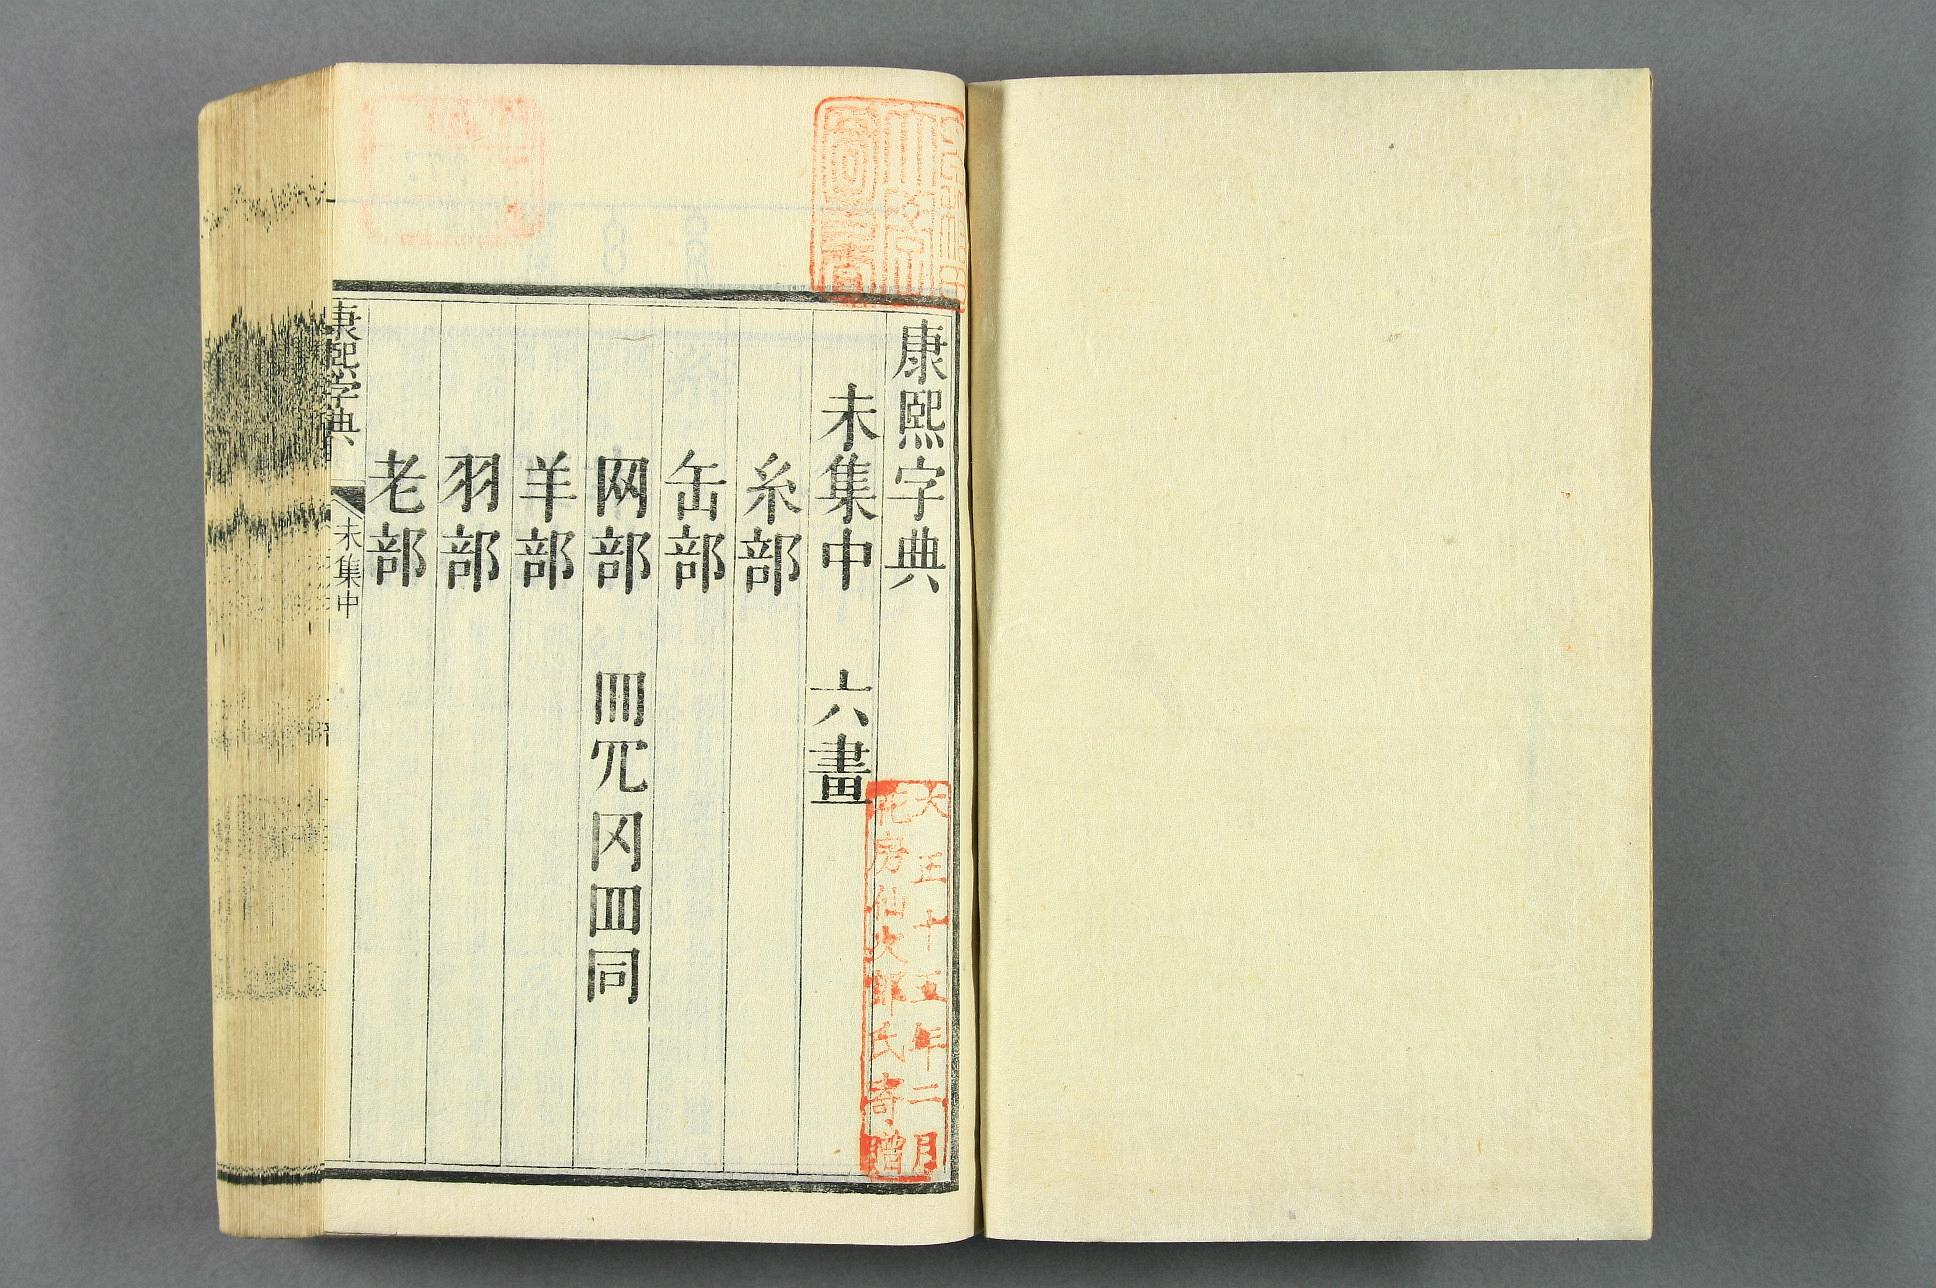 康熙字典
未集中 六畫
糸部
缶部
网部 𦉪𦉫冈罒同
羊部
羽部
老部
康熙字典 未集中
大正十五年二月
花房仙次郎氏寄贈